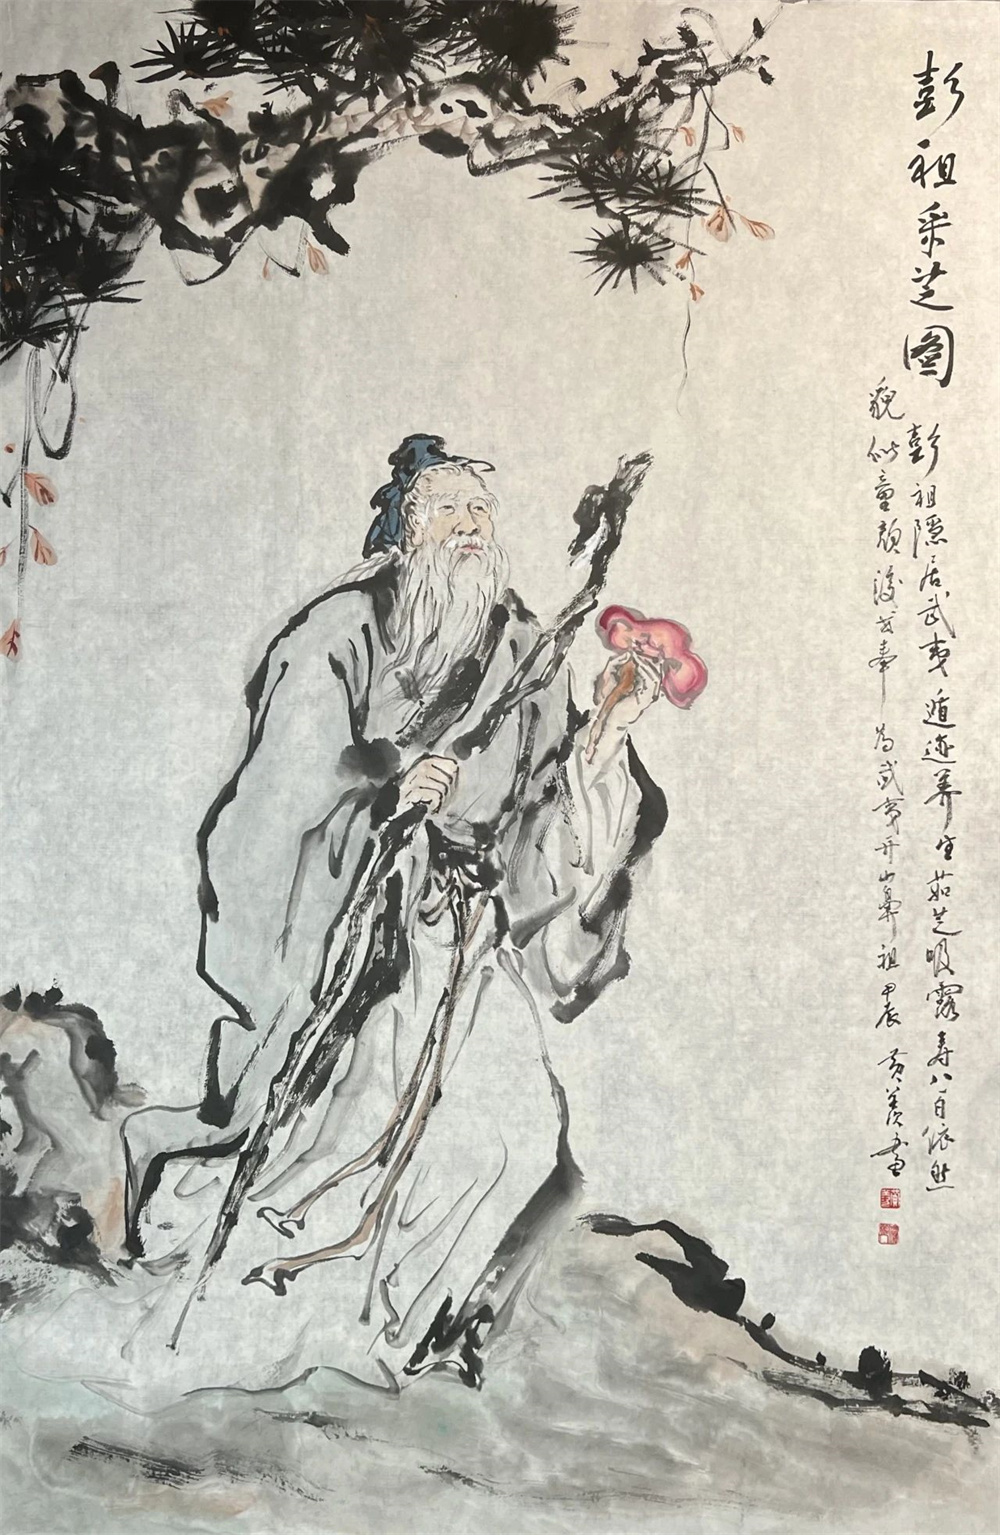 彭祖采芝图
彭祖隐居武夷遁迹养生茹芝吸露寿八百依然
貌似童颜后尊奉为武夷开山鼻祖甲辰黄羡画